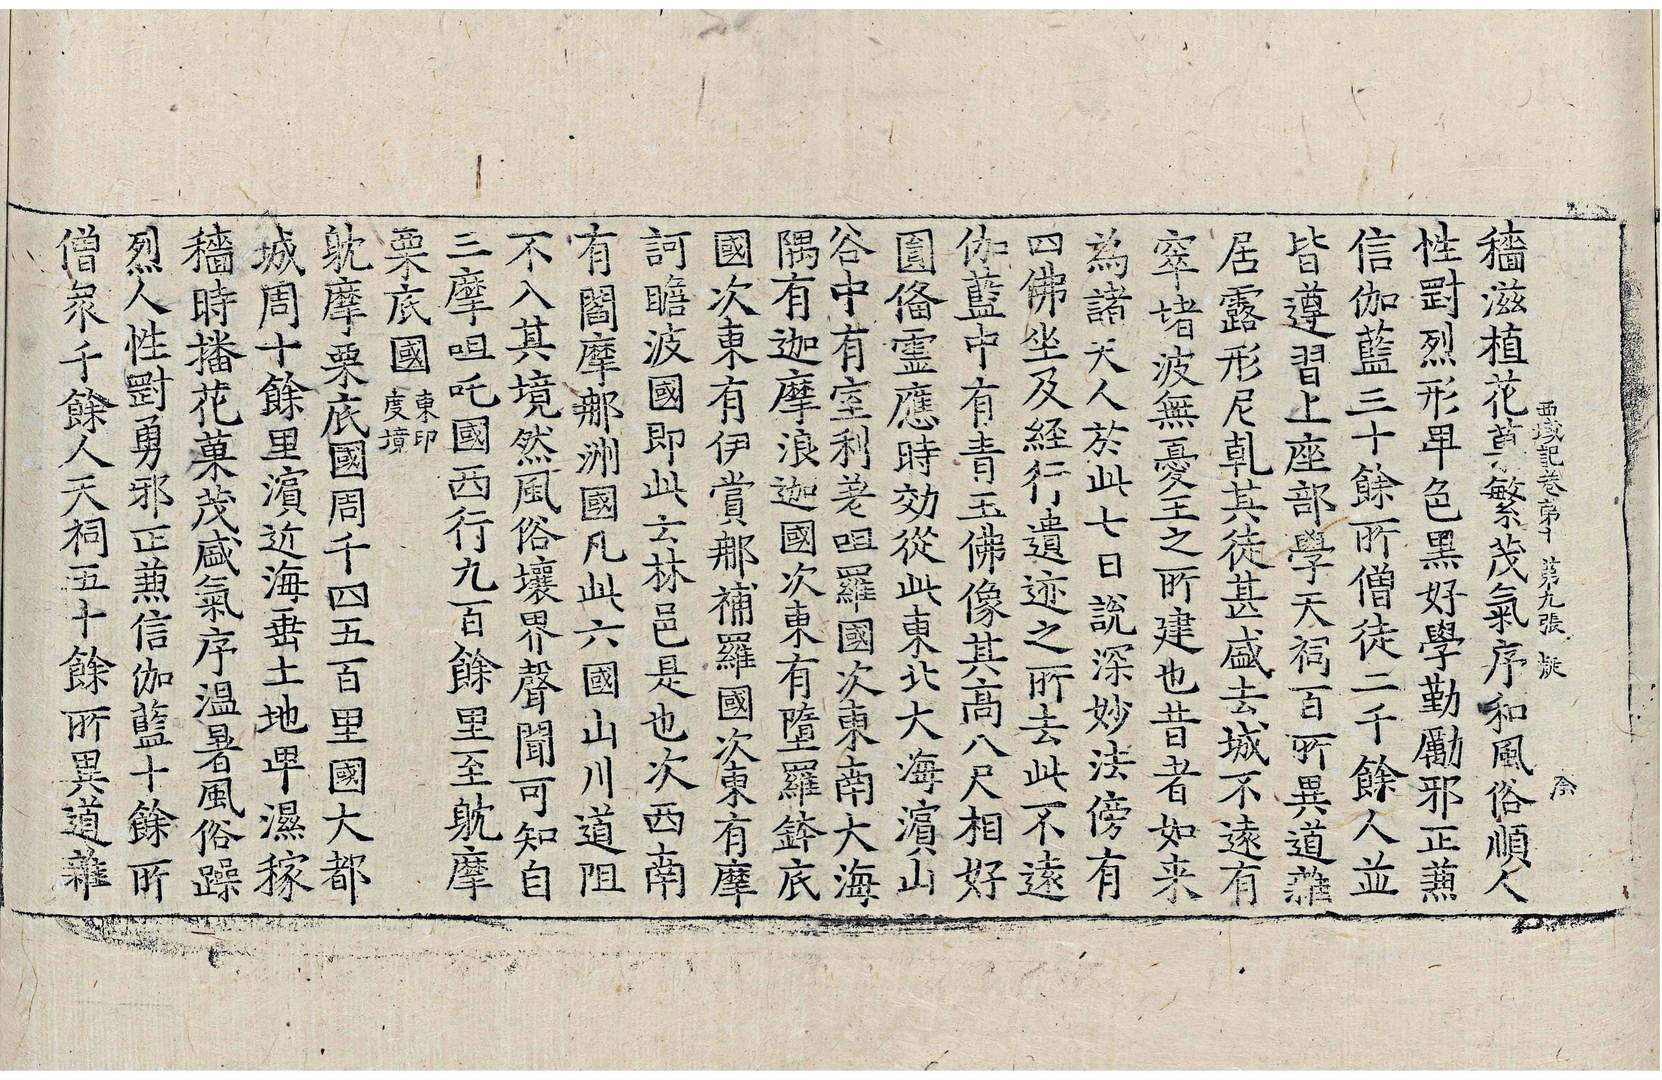 西域記卷第十 第九張 㲠
穡滋植花草繁茂氣序和風俗順人
性剛烈形卑色黑好學勤勵邪正兼
信伽藍三十餘所僧徒二千餘人並
皆遵習上座部學天祠百所異道雜
居露形尼乹其徒甚盛去城不遠有
窣堵波無憂王之所建也昔者如来
為諸天人於此七日說深妙法傍有
四佛坐及經行遺迹之所去此不遠
伽藍中有青玉佛像其高八尺相好
圓俻靈應時効從此東北大海濵山
谷中有室利差呾羅國次東南大海
隅有迦摩浪迦國次東有墮羅鉢底
國次東有伊賞那補羅國次東有摩
訶瞻波國即此云林邑是也次西南
有閻摩那洲國凡此六國山川道阻
不入其境然風俗壤界聲聞可知自
三摩呾吒國西行九百餘里至躭摩
栗底國 東印度境
躭摩栗底國周千四五百里國大都
城周十餘里濵近海垂土地卑濕稼
穡時播花菓茂盛氣序温暑風俗躁
烈人性剛勇邪正兼信伽藍十餘所
僧衆千餘人天祠五十餘所異道雜